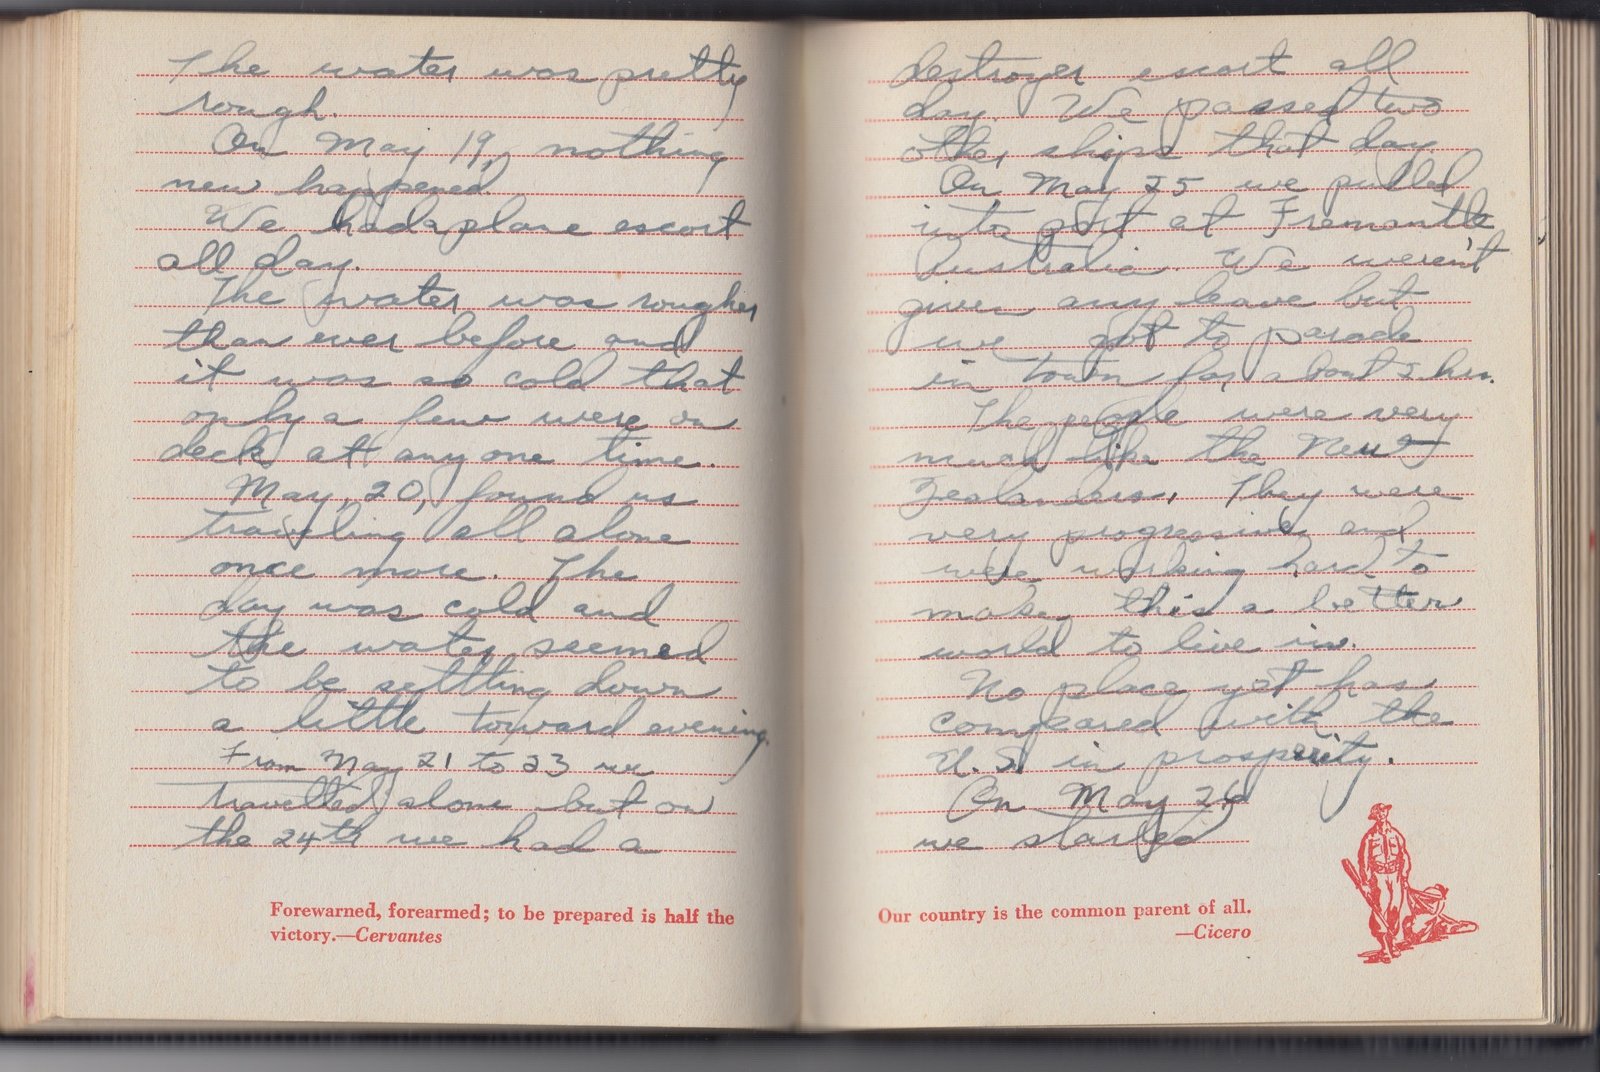 The water was pretty
rough.
On May 19, nothing
new happened.
We had a plane escort
all day.
The water was rougher
than ever before and
it was so cold that
only a few were on
deck at any one time.
May, 20, found us
traveling all alone
once more. The
day was cold and
the water seemed
to be settling down
a little toward evening.
From May 21 to 23 we
travelled alone but on
the 24th we had a
Forewarned, forearmed; to be prepared is half the
victory.—Cervantes
destroyer escort all
day. We passed two
other ships that day.
On May 25 we pulled
into port at Fremantle
Australia. We weren't
given any leave but
we got to parade
in town for about 2 hrs.
The people were very
much like the New
Zealanders, They were
very progressive and
were working hard to
make this a better
world to live in.
No place yet has
compared with the
U.S. in prosperity.
On May 26
we started
Our country is the common parent of all.
—Cicero